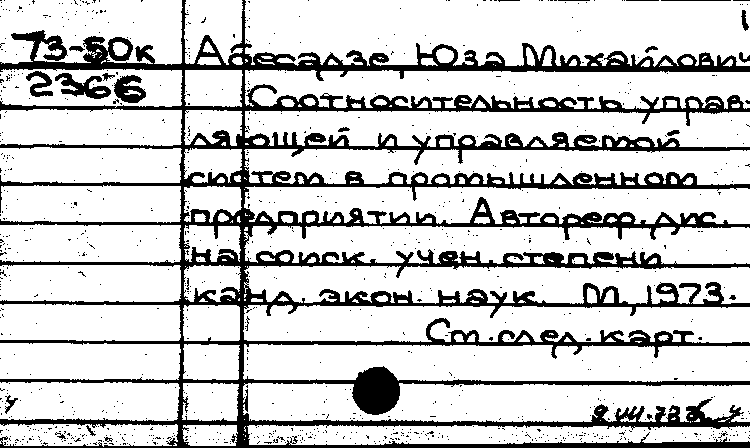 73-50к Абесадзе, Юза Михайлович
2366
Соотносительность управ-
ляющей и управляемой
систем в промышленном
предприятии. Автореф. дис.
на соиск. учен. степени
канд. экон. наук. М., 1973.
См. след. карт.